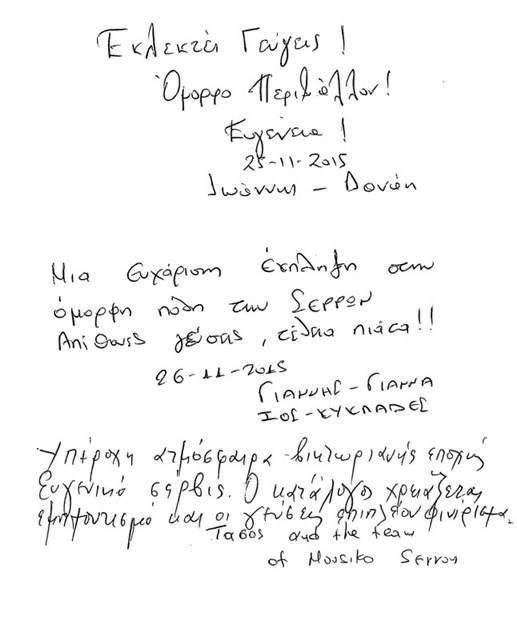 Εκλεκτές Γεύσεις!
Όμορφο Περιβάλλον!
Ευγένεια!
25-11-2015
Ιωάννης - Δανάη
Μια ευχάριστη έκπληξη στην
όμορφη πόλη των Σερρών
Απίθανες γεύσεις, τέλεια πιάτα!!
26-11-2015
ΓΙΑΝΝΗΣ - ΓΙΑΝΝΑ
ΙΟΣ - ΚΥΚΛΑΔΕΣ
Υπέροχη ατμόσφαιρα βικτωριανής εποχής
Ευγενικό σέρβις. Ο κατάλογος χρειάζεται
εμπλουτισμό και οι γεύσεις επιπλέον φινίρισμα.
Τασος and the team
of Mousiko Serron